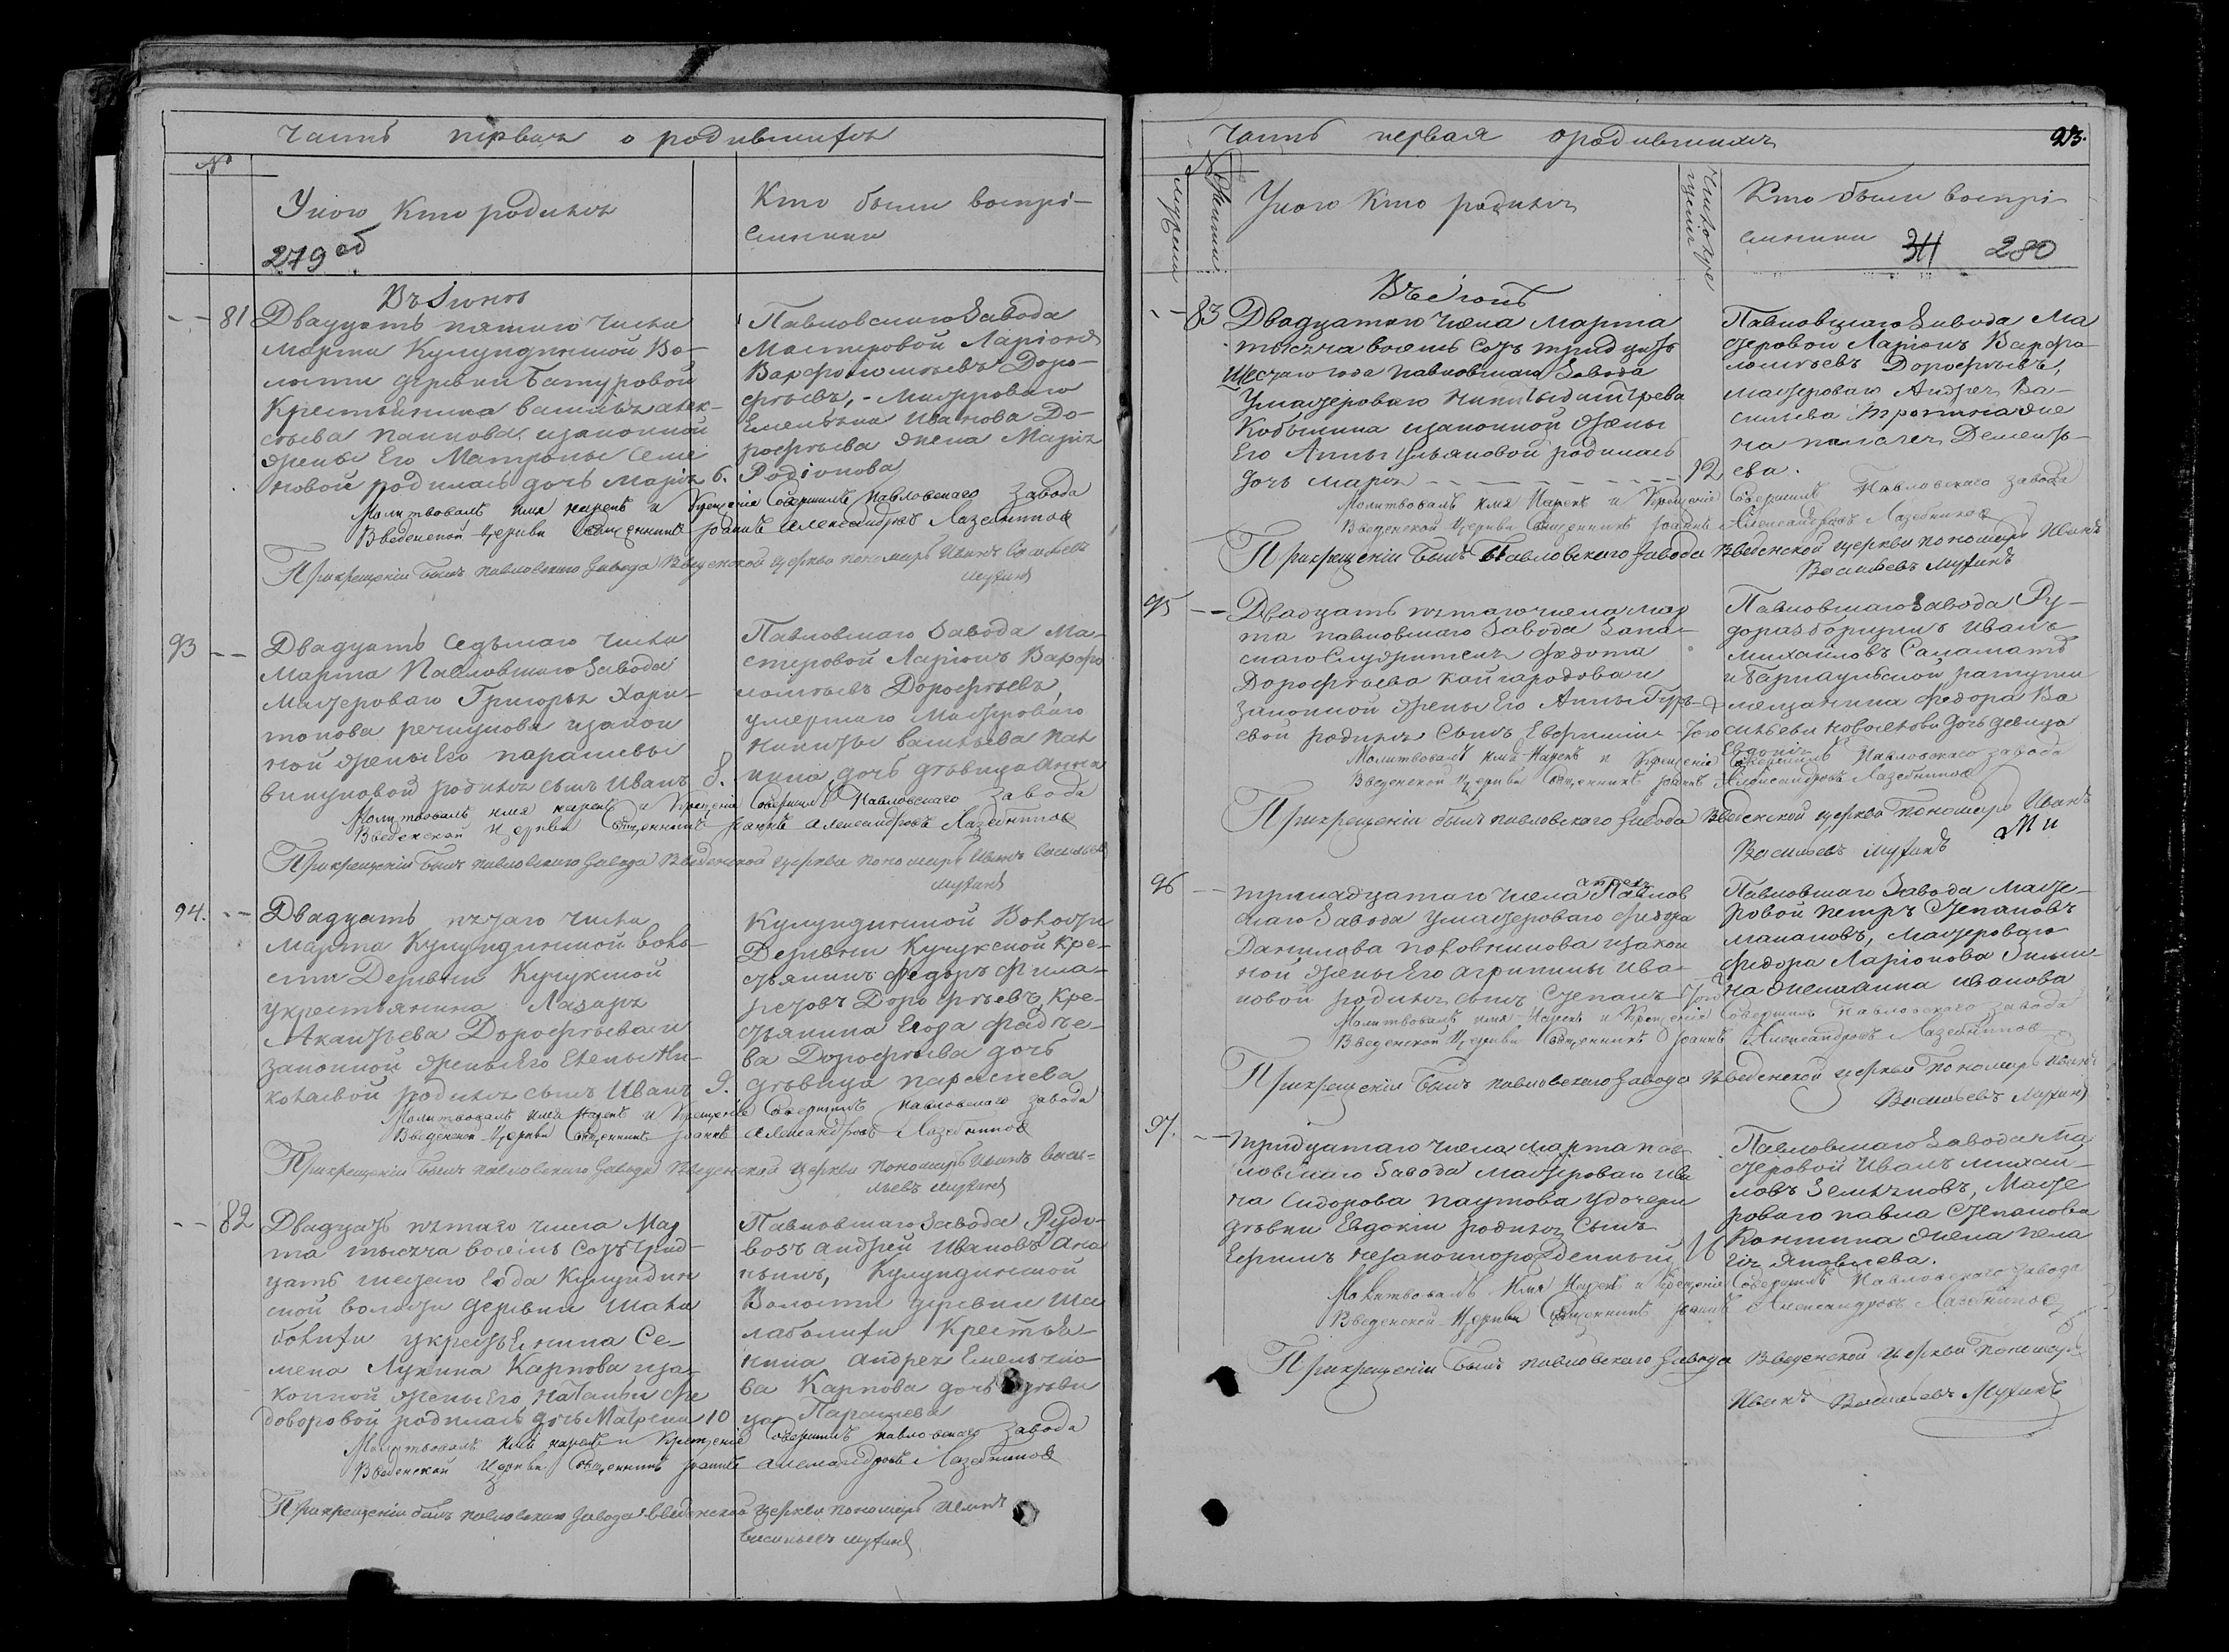 Часть первая о родившихся
№
У кого кто родился
Кто были воспрі-
емники
279 об
Въ Іюнѣ
81 Двадцать пятаго числа
марта Кулундинской Во-
лости деревни Батуровой
Крестьянина Василья алек-
сѣева паннова, изаконной
жены Его Матроны Семе
новой родилась дочь Марія 6.
Павловскаго Завода
Мастеровой Ларіонъ
Варфоломѣевъ Доро-
фѣевъ, - Мастероваго
Емельяна Иванова До-
рофѣева жена Марія
Родіонова
Молитвовалъ имя нарекъ и Крещеніе Совершилъ Павловскаго завода
Введенской Церкви Священникъ Іоаннъ Александровъ Лазебников
При крещеніи былъ павловскаго Завода Введенской церкви пономарь Иванъ Васильевъ
Мухинъ
93 Двадцать Седьмаго Числа
Марта Павловскаго Завода
Мастероваго Григорья Хари-
тонова речкунова изакон
ной жены Его парасковьи
викуловой родился сынъ Иванъ 8.
Павловскаго Завода Ма-
стеровой Ларіонъ Варфо
ломѣевъ Дорофѣевъ,
умершаго Мастероваго
никиты Васильева пан
кина, дочь дѣвица Анна
Молитвовалъ имя нарекъ и Крещеніе Совершилъ Павловскаго завода
Введенской Церкви Священникъ Іоаннъ Александровъ Лазебников
При крещеніи былъ павловскаго Завода Введенской церкви пономарь Иванъ Васильевъ
Мухинъ
94. Двадцать пятаго числа
Марта Кулундинской воло-
сти Деревни Кучукской
укрестьянина Лазаря
Акантьева Дорофѣева и
законной жены Его Елены Ни-
колаевой родился сынъ Иванъ 9.
Кулундинской Волости
Деревни Кучукской кре-
стьянинъ Федоръ Фила-
ретовъ Дорофѣевъ, Кре-
стьянина Егора Фадѣе-
ва Дорофѣева дочь
дѣвица парасковья
Молитвовалъ имя Нарекъ и Крещеніе Совершилъ павловскаго завода
Введенской Церкви Священникъ Іоаннъ Александровъ Лазебников
При крещеніи былъ павловскаго Завода Введенской церкви пономарь Иванъ Васи-
льевъ Мухинъ
82 Двадцать пятаго числа Мар
та тысяча восемь Сотъ трид-
цать шестаго Года Кулундин
ской волости деревни Шала
болихи укрестьянина Се-
мена Лукина Карпова иза-
конной жены Его Наталіи Фе
доворовой родилась дочь Матрена 10
Павловскаго Завода Рудо-
возъ Андрей Ивановъ Ана
ньинъ, Кулундинской
Волости деревни Ша
лаболихи Крестья-
нина Андрея Емельяно-
ва Карпова дочь дѣви
ца Парасковья
Молитвовалъ имя нарекъ и Крещеніе Совершилъ павловскаго завода
Введенской Церкви Священникъ Іоаннъ Александровъ Лазебников
При крещеніи былъ павловскаго Завода Введенской церкви пономарь Иванъ
Васильевъ Мухинъ
Часть первая о родившихся
93.
У кого кто родился
Кто были воспрі-
емники 280
Въ Іюнѣ
83 Двадцатаго Числа Марта
тысяча восемь Сотъ тридцать
Шестаго года павловскаго Завода
Умастероваго никиты дмитрева
Кобылина изаконной жены
Его Анны Ульяновой родилась
дочь Марія 12
Павловскаго Завода Ма
стеровой Ларіонъ Варфо-
ломѣевъ Дорофѣевъ,
мастероваго Андрея Ва-
сильева жена
Дементь-
ева.
Молитвовалъ имя Нарекъ и Крещеніе Совершилъ Павловскаго завода
Введенской Церкви Священникъ Іоаннъ Александровъ Лазебников
При крещеніи былъ Павловскаго Завода Введенской церкви пономарь Иванъ
Васильевъ Мухинъ
95 Двадцать пятаго числа мар
та павловскаго Завода Запа-
снаго Служителя Федота
Дорофѣева кайгородова и
законной жены Его Анны
евой родился Сынъ Евфимій
Павловскаго Завода Ру-
доразборщикъ Иванъ
михайловъ Саламатъ
и Барнаульской ратуши
мещанина Федора Ва
сильева дочь девица
Евдокія
Молитвовалъ имя Нарекъ и Крещеніе Совершилъ Павловскаго завода
Введенской Церкви Священникъ Іоаннъ Александровъ Лазебников
При крещеніи былъ павловскаго Завода Введенской церкви Пономарь Иванъ
Васильевъ Мухинъ
96 тринадцатаго числа апреля Павлов
скаго Завода Умастероваго Федора
Данилова половникова изакон
ной жены Его Агрипины Ива-
новой родился сынъ Степанъ
Павловскаго Завода Масте-
ровой петръ Степановъ
Мастероваго
Федора Ларіонова
на жена анна иванова
Молитвовалъ имя Нарекъ и Крещеніе Совершилъ Павловскаго завода
Введенской Церкви Священникъ Іоаннъ Александровъ Лазебников
При крещеніи былъ павловскаго Завода Введенской церкви пономарь Иванъ
Васильевъ Мухинъ
97. тридцатаго числа марта пав
ловскаго Завода мастероваго Ива
на Сидорова паутова удочери
дѣвки Евдокіи родился Сынъ
Ермилъ незаконнорожденный 16
Павловскаго Завода Ма
стеровой Иванъ михай-
ловъ Земляновъ, Масте
роваго павла Степанова
жена пела
гія Яковлева.
Молитвовалъ Имя Нарекъ и Крещеніе Совершилъ Павловскаго завода
Введенской Церкви Священникъ Іоаннъ Александровъ Лазебников
При крещеніи былъ павловскаго Завода Введенской церкви Пономарь
Иванъ Васильевъ Мухинъ